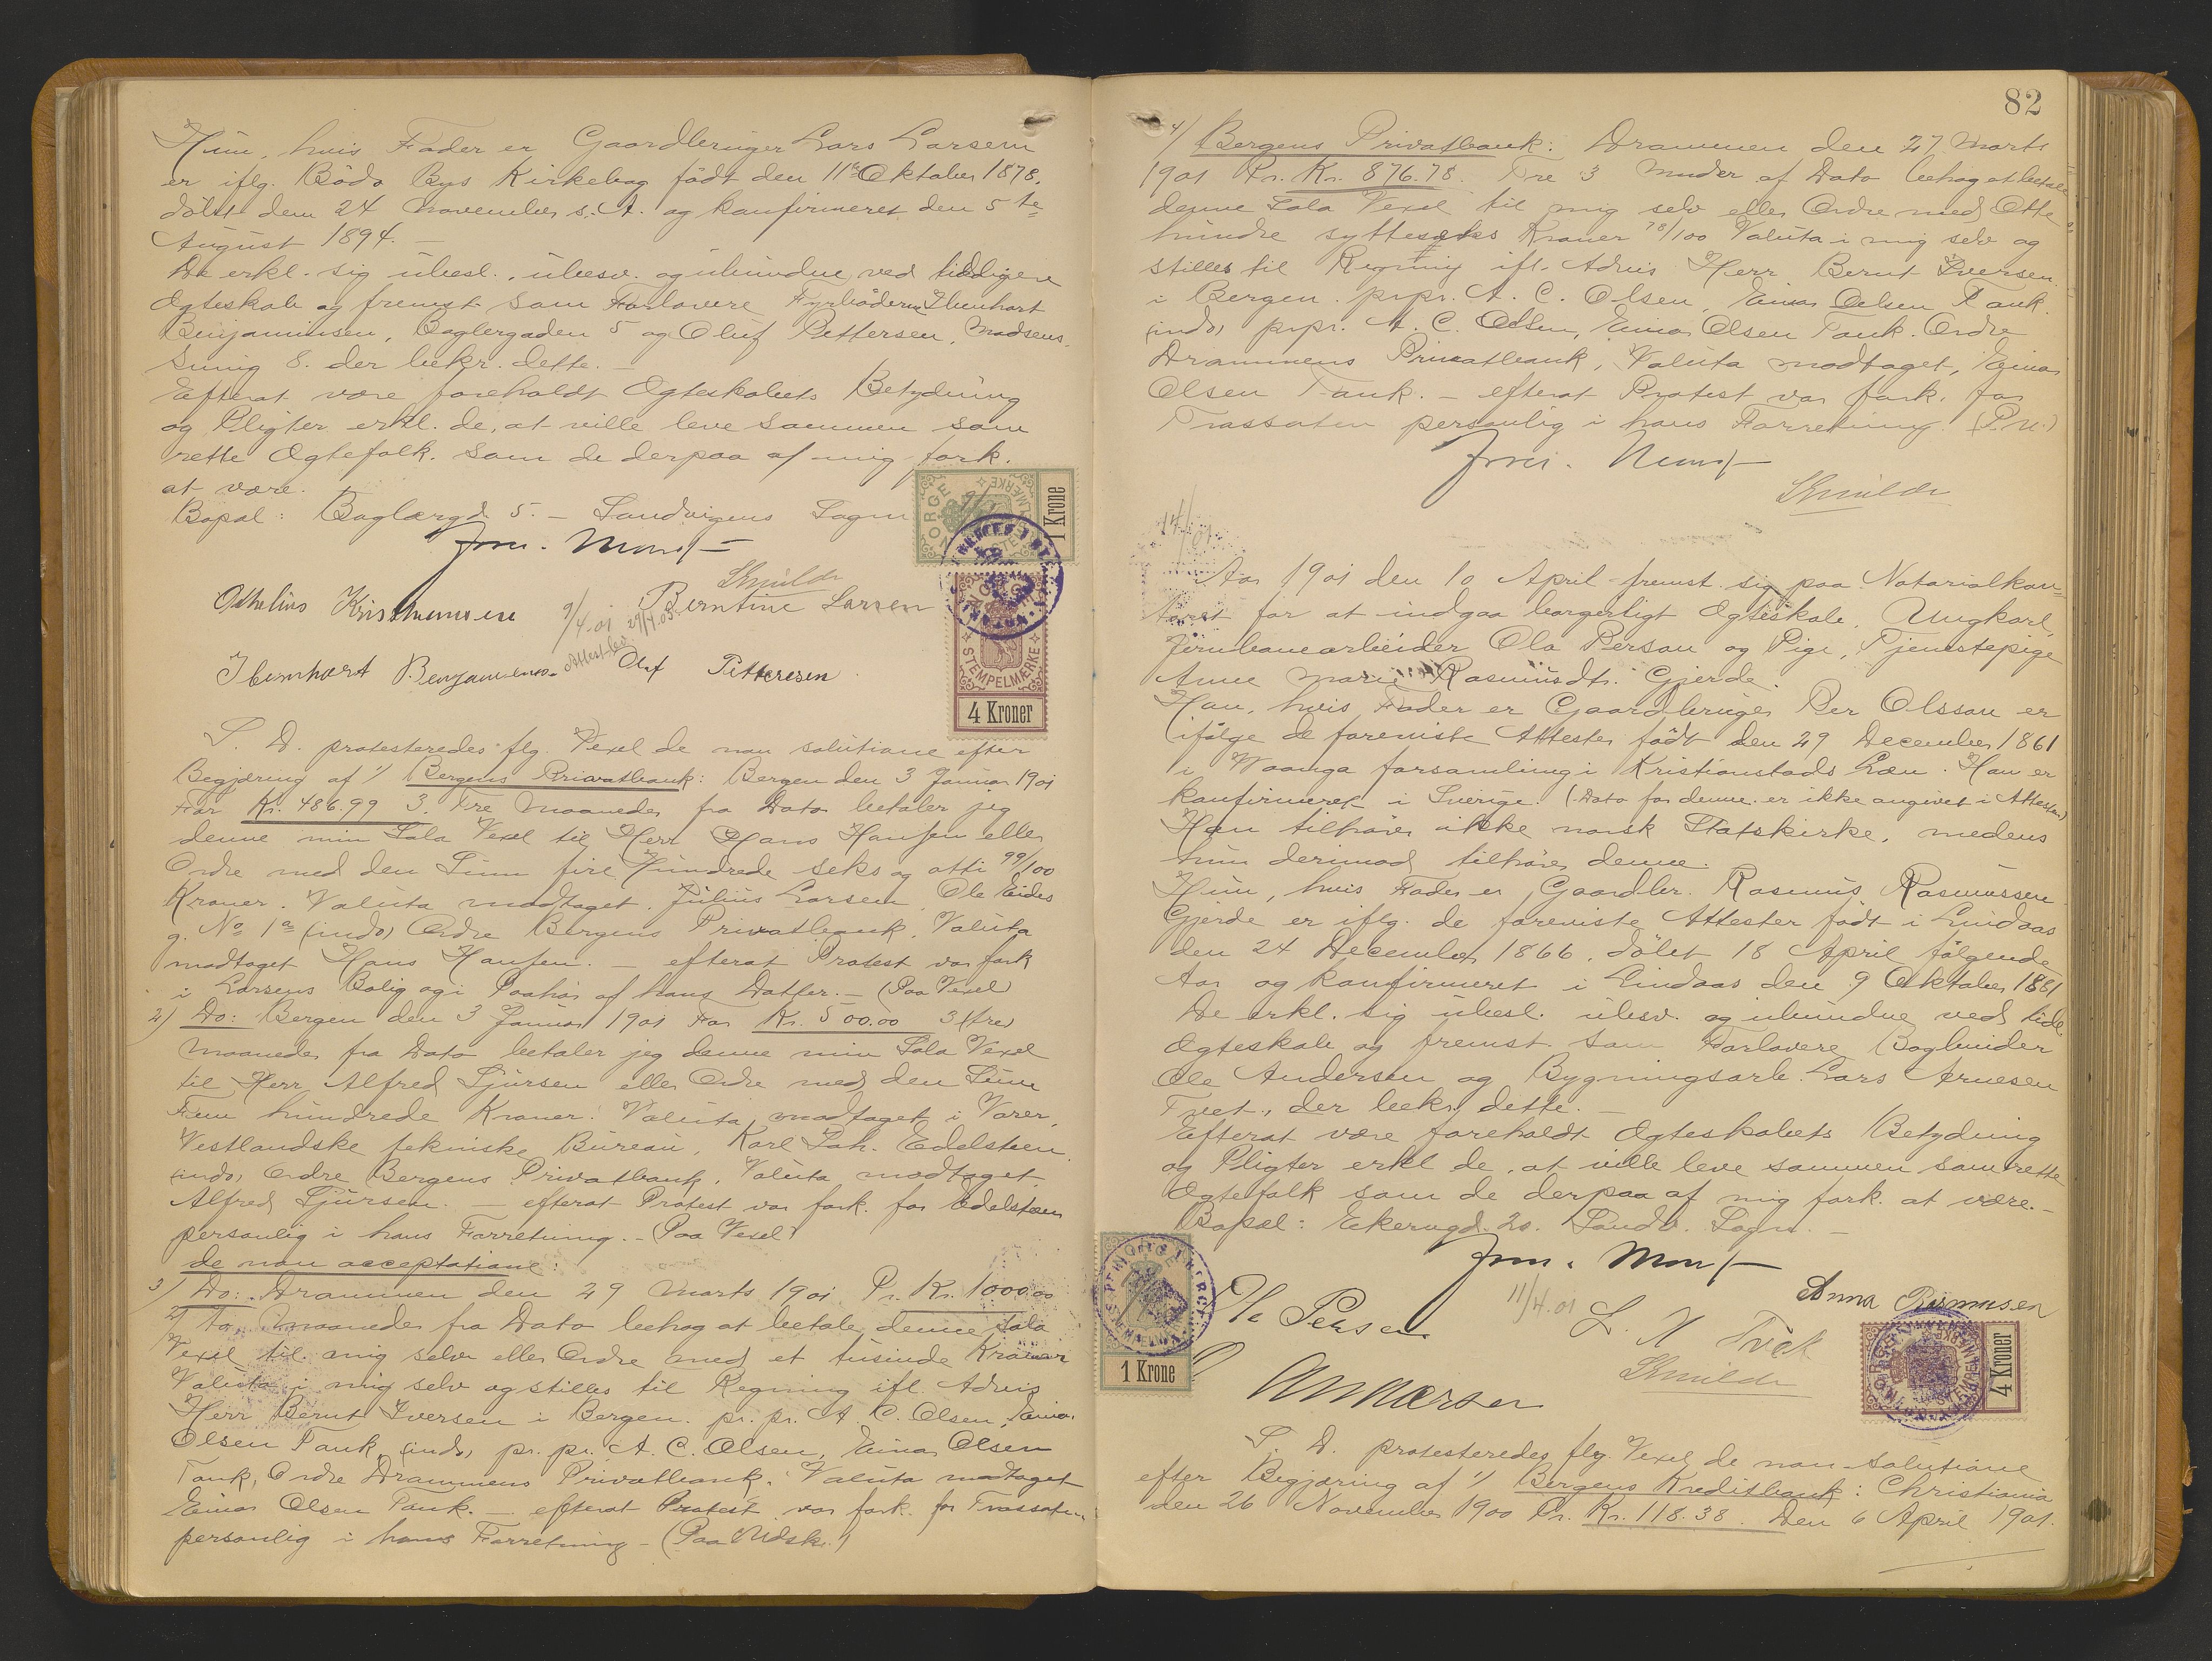 Hun, hvis Fader er Gaardbruger Lars Larsen
er iflg. Bodø Bys Kirkebog født den 11te Oktober 1878,
døbt den 24 November s. A. og konfirmeret den 5te
August 1894. —
De erkl. sig ubesl., ubesv. og ubundne ved tidligere
Ægteskab og fremst. som Forlovere Fyrbøderne Ibenhart
Benjaminsen, Baglergaden 5 og Oluf Pettersen, Madsens
Smug 8. der bekr. dette. —
Efterat være foreholdt Ægteskabets Betydning
og Pligter erkl. de, at ville leve sammen som
rette Ægtefolk. som de derpaa af mig fork.
at være.
Bopæl: Baglergd. 5. — Sandvigens Sogn
NORGE STEMPELMÆRKE
1 Krone
Othelius Kristiansen
9/4.01
Berntine Larsen
Ibernhart Benjamins.
Attest lev.
Oluf Pettersen
STEMPELMÆRKE
4 Kroner
S. D. protesteredes flg. Vexel de non solutione efter
Begjæring af 1/ Bergens Privatbank: Bergen den 3 Januar 1901
For Kr. 486.99 3. Tre Maaneder fra Dato betaler jeg
denne min Sola Vexel til Herr Hans Hansen eller
Ordre med den Sum fire Hundrede seks og otti 99/100
Kroner. Valuta modtaget. Julius Larsen, Ole Eides
g. No 1a (indo) Ordre Bergens Privatbank. Valuta
modtaget Hans Hansen. — efterat Protest var fork
i Larsens Bolig og i Paahør af hans Datter. — (Paa Vexel)
2) Do: Bergen den 3 Januar 1901 For Kr. 500.00 3 (tre)
Maaneder fra Dato betaler jeg denne min Sola Vexel
til Herr Alfred Sjursen eller Ordre med den Sum
Fem hundrede Kroner: Valuta modtaget i Varer,
Vestlandske tekniske Bureau, Karl Joh. Edelsteen.
(indo) Ordre Bergens Privatbank. Valuta modtaget.
Alfred Sjursen. — efterat Protest var fork. for Edelsteen
personlig i hans Forretning. — (Paa Vexel)
de non acceptatione:
3) Do: Drammen den 29 Marts 1901 Pr. Kr. 1000.00
2) To Maaneder fra Dato behag at betale denne Sola
Vexel til mig selv eller Ordre med et tusinde Kroner
Valuta i mig selv og stilles til Regning ifl. Advis
Herr Bernt Iversen i Bergen. pr. pr. A. C. Olsen, Einar
Olsen Tank, (indo) pr. pr. A. C. Olsen, Einar Olsen
Tank, Ordre Drammens Privatbank. Valuta modtaget
Einar Olsen Tank. — efterat Protest var fork. for Trassaten
personlig i hans Forretning — (Paa Udsk.)
82
4/ Bergens Privatbank: Drammen den 27 Marts
1901 Pr. Kr. 876.78. Tre 3 Mnder af Dato behag at betale
denne Sola Vexel til mig selv eller Ordre med Otte
hundre syttiseks Kroner 78/100 Valuta i mig selv og
stilles til Regning ifl. Advis Herr Bernt Iversen
i Bergen. prpr. A. C. Olsen, Einar Oelsen Tank.
(indo) prpr. A. C. Olsen, Einar Olsen Tank. Ordre
Drammens Privatbank, Valuta modtaget, Einar
Olsen Tank. — efterat Protest var fork. for
Trassaten personlig i hans Forretning. (P. U.)
14/01
Aar 1901 den 10 April fremst. sig paa Notarialkon-
toret for at indgaa borgerligt Ægteskab, Ungkarl,
Jernbanearbeider Ola Person og Pige, Tjenestepige
Anne Marie Rasmusdtr. Gjerde.
Han, hvis Fader er Gaardbruger Per Olsson er
ifølge de foreviste Attester født den 29 December 1861
i Woanga forsamling i Kristianstads Læn. Han er
konfirmeret i Sverige. (Dato for denne er ikke angivet i Attesten)
Han tilhører ikke norsk Statskirke, medens
hun derimod tilhører denne.
Hun, hvis Fader er Gaardbr. Rasmus Rasmussen
Gjerde er iflg. de foreviste Attester født i Lindaas
den 24 December 1866, døbt 18 April følgende
Aar og konfirmeret i Lindaas den 9 Oktober 1881
De erkl. sig ubesl. ubesv. og ubundne ved tidl.
Ægteskab og fremst. som Forlovere Bogbinder
Ole Andersen og Bygningsarb. Lars Arnesen
Tveet, der bekr. dette. —
Efterat være foreholdt Ægteskabets Betydning
og Pligter erkl de, at ville leve sammen som rette
Ægtefolk som de derpaa af mig fork. at være. —
Bopæl: Ekerugd. 20. Sandv. Sogn. —
NORGE
1 Krone
Ola Person
11/4.01
Anna Rasmusen
O Andersen
4 Kroner
S. D. protesteredes flg. Vexel de non solutione
efter Begjæring af 1/ Bergens Kreditbank: Christiania
den 26 November 1900 Pr. Kr. 118.38. Den 6 April 1901.